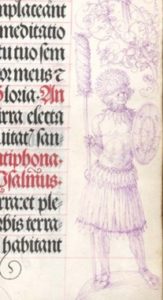 mplaceant
meditatio
tu tuo sem
or meus ⁊
Gloria. An
irra electa
uitat᷒ san
ntiphona.
Psalmus.
rra: et ple
rbis terra⸗
habitant